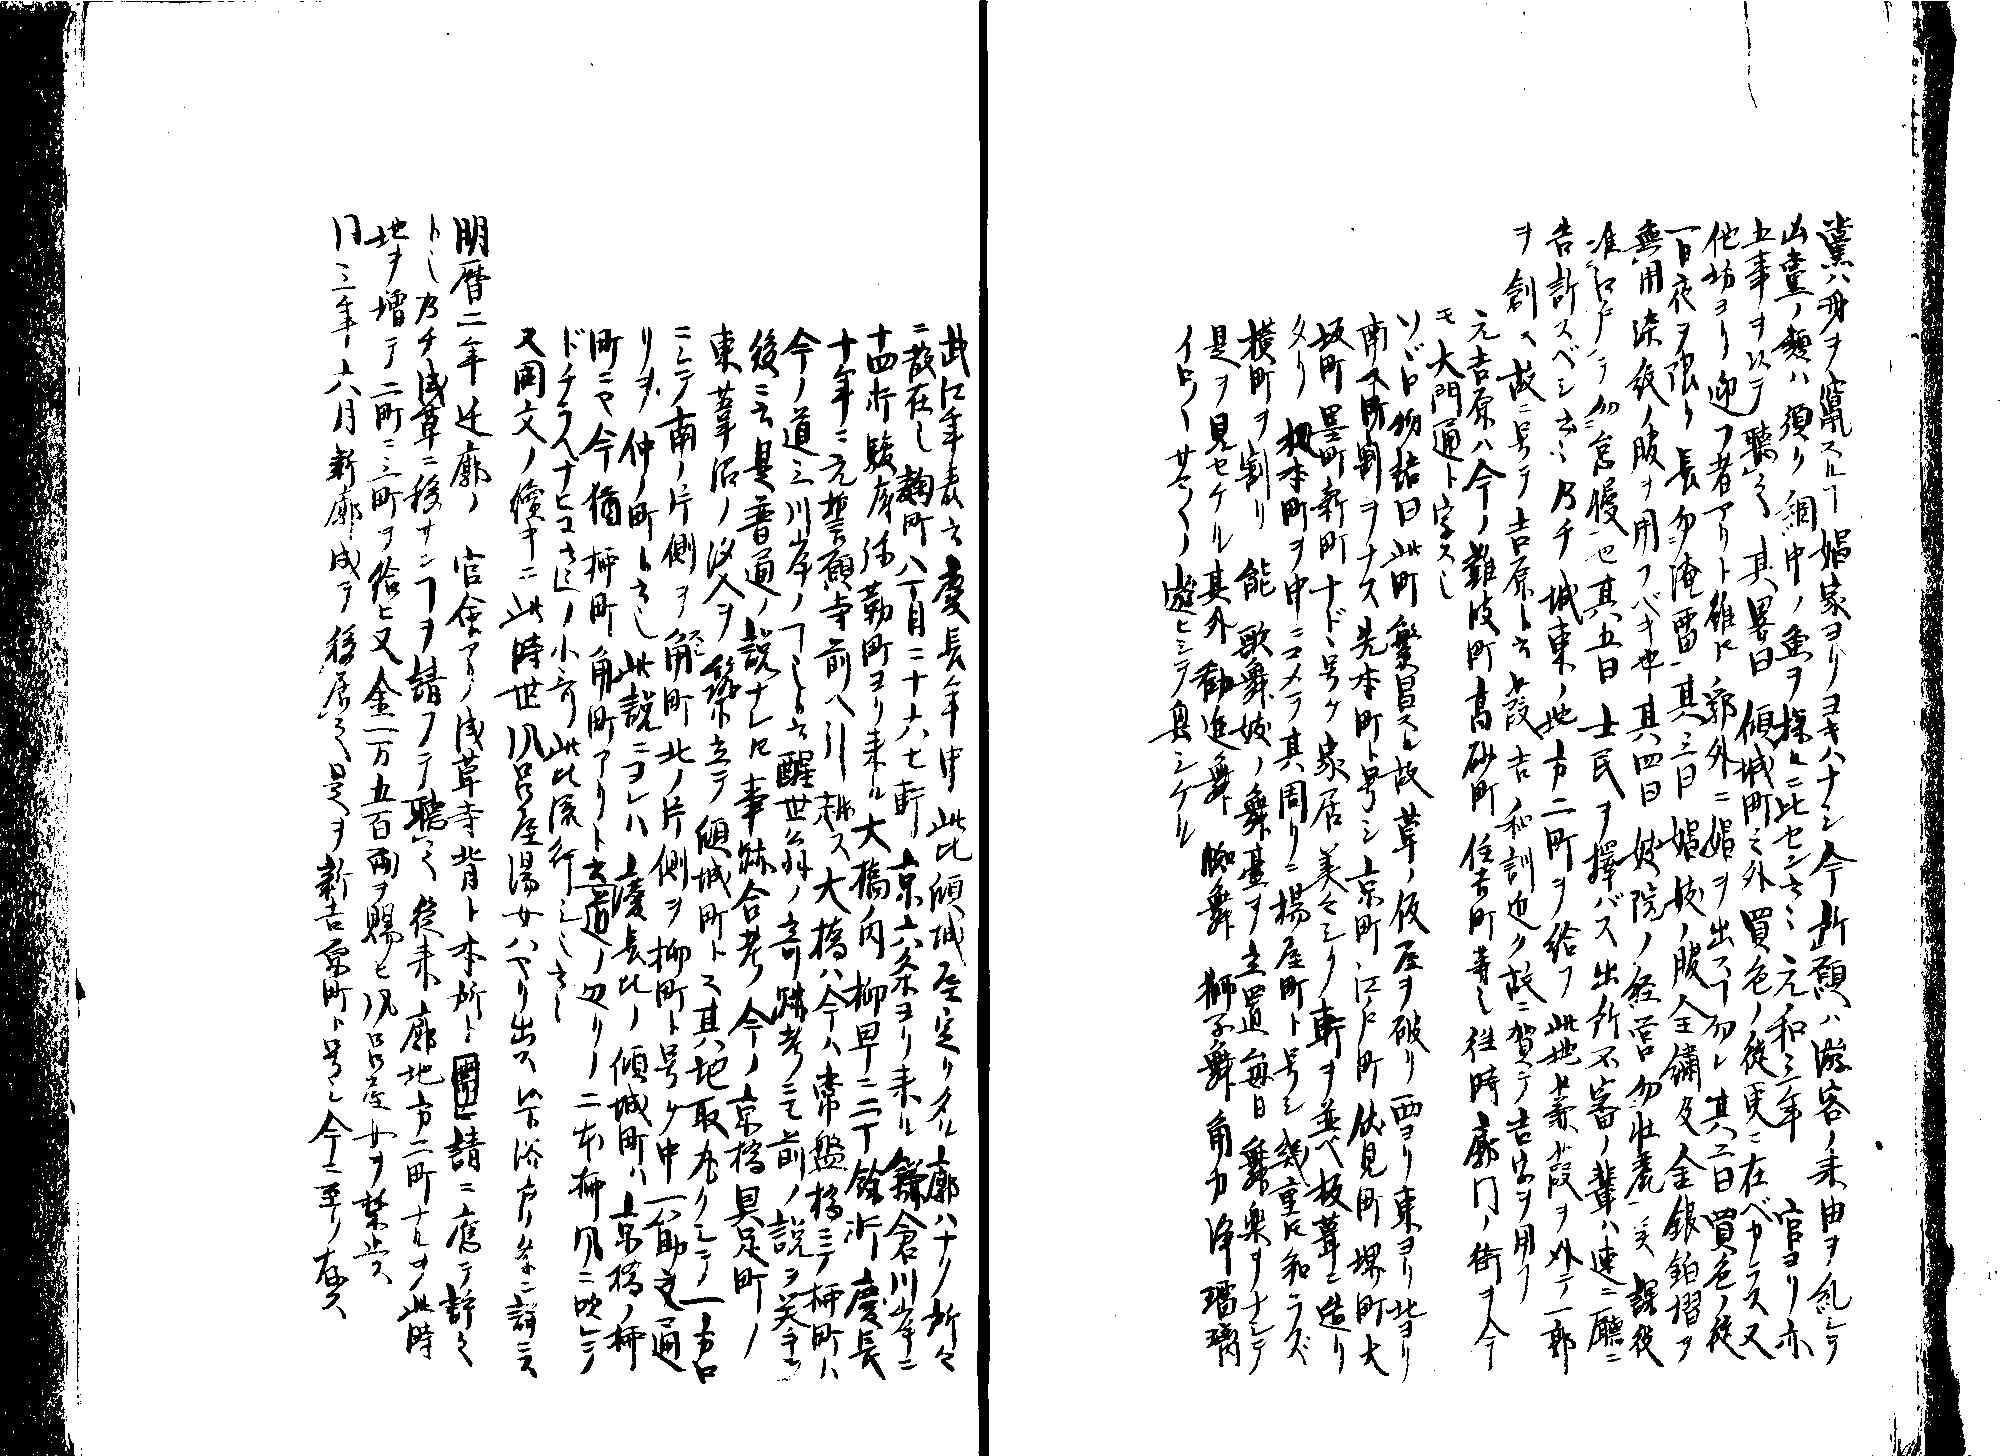 黨ハ身ヲ竄スルヿ娼家ヨリヨキハナシ今所願ハ游客ノ来由ヲ糺シテ
凶黨ノ類ハ須リ網中ノ魚ヲ探ルニ比センさミ元和三年 官ヨリ亦
五事ヲ以テ聴之其畧曰傾城町ミ外買色ノ徒更ニ在ベカラス又
他坊ヨリ迎フ者アリト雖ド郭外ニ娼ヲ出スヿ勿レ其二曰買色ノ徒
一日夜ヲ限リ長ク勿淹畱其三曰娼妓ノ服全繍及金銀鉑摺ヲ
無用染紋ノ服ヲ用フベキ也其四曰妓院ノ経営勿壮麗ミ 課役
准江戸テ勿怠慢也其五曰士民ヲ擇バス出所不審ノ輩ハ速ニ廰ニ
告訴スベシ云ミ乃チ城東ノ地方二町ヲ給フ此地葭ヲ外テ一郭
ヲ創ス故ニ号テ吉原ト云葭吉和訓近ク故ニ賀テ吉字ヲ用フ
元吉原ハ今ノ難波町高砂町住吉町等ミ往時廓門ノ街ヲ今
モ大門通ト字スミ
ソヾロ物語曰此町繁昌スル故草ノ仮屋ヲ破リ西ヨリ東ヨリ北ヨリ
南ヘ町割ヲナス先本町ト号シ京町江戸町伏見町堺町大
坂町墨町新町ナドヽ号ケ家居美々シク軒ヲ並ベ板葺ニ造リ
タリ 扨本町ヲ中ニコメテ其周リニ揚屋町ト号シ幾重ド知ラズ
横町ヲ割リ能歌舞妓ノ舞臺ヲ立置毎日舞樂ヲナシテ
是ヲ見セケル其外勧進舞蜘舞獅子舞角力浄瑠璃
イロ〳〵サマ〳〵ノ遊ヒシテ興シケル
武江年表云慶長年中此比傾城屋定リタル廓ハナク所々
ニ散在し麹町八丁目ニ十六七軒京六条ヨリ来ル鎌倉川岸ニ
十四五軒駿府弥勒町ヨリ来ル大橋ノ内柳町ニ二丁餘軒慶長
十年ニ元誓願寺前ヘ引越ス大橋ハ今ハ常盤橋ミ柳町ハ
今ノ道三川岸ノヿミト云醒世翁ノ奇跡考ミ前ノ説ヲ笑テ
後ミ云是普通ノ説ナレド事跡合考今ノ京橋具足町ノ
東葦沼ノ汐入ヲ築立テ傾城町トス其地取丸クシテ一方口
ニシテ南ノ片側ヲ角町北ノ片側ヲ柳町ト号ケ中一筋之通
リヲ仲ノ町トさし此説ニヨレハ慶長比ノ傾城町ハ京橋ノ柳
町ニや今猶柳町角町アリト云道ノ辺リノ二本柳風ニ吹レテ
ドチラヘナヒコさトノ小哥此比流行シミさし
又寛文ノ續キニ此時世風呂屋湯女ハヤリ出ス※下浴戸ノ条ニ詳ミス
明暦二年辻廓ノ 官命アリ浅草寺背ト本所ト 請ニ應テ許之
トミ乃チ浅草ニ移サンヿヲ請フテ聴之従来廓地方二町ナルヲ此時
地ヲ増テ二町ニ三町ヲ給ヒ又金一万五百両ヲ賜ヒ風呂屋女ヲ禁止ス
同三年六月新廓成テ移居之是ヲ新吉原町ト号シ今ニ至リ存ス